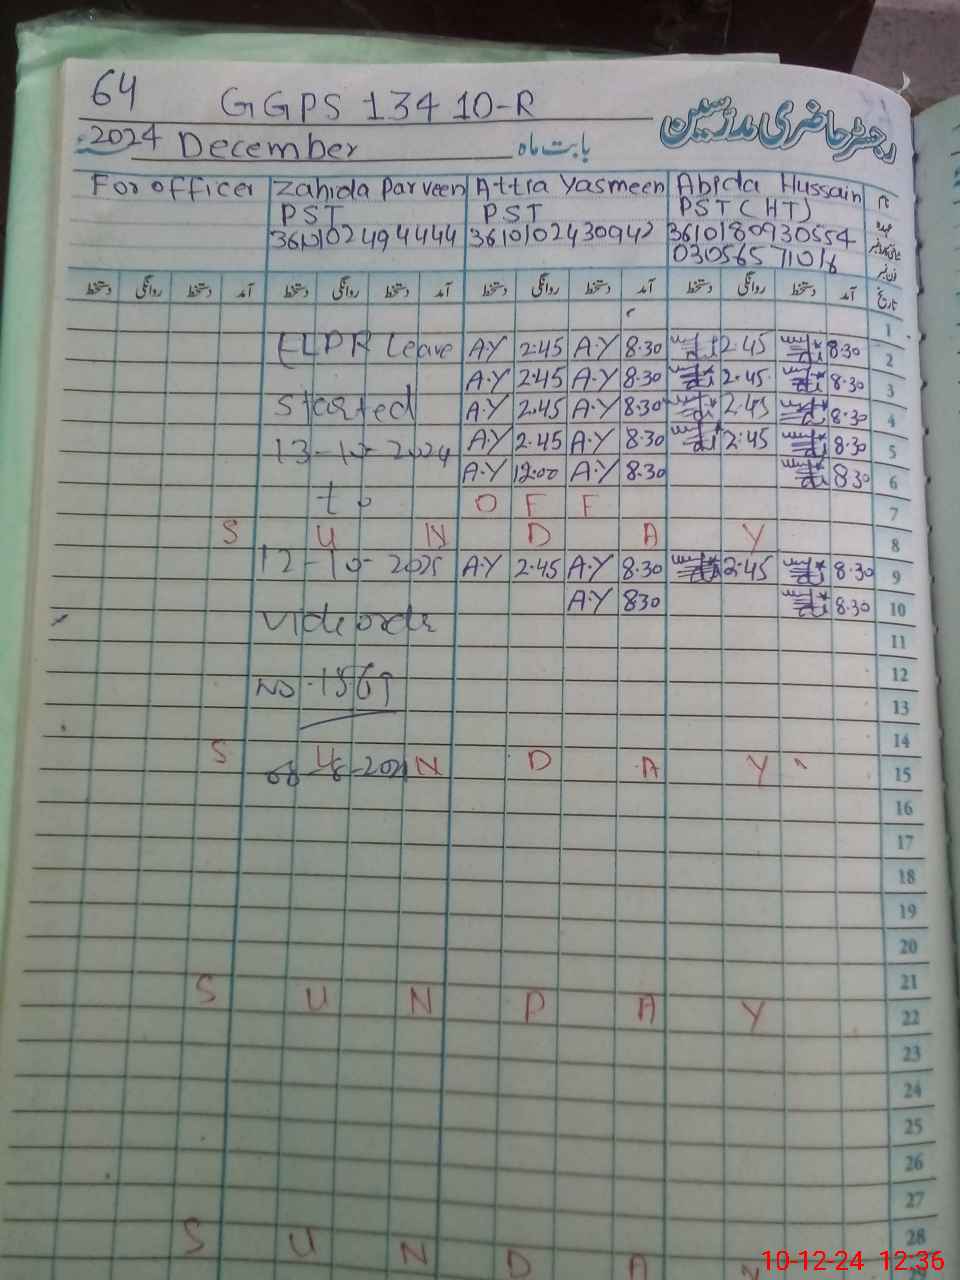 64 GGPS 134 10-R
رجسٹر حاضری مدرسین
2024 December بابت ماہ
For officer Zahida Parveen Attia Yasmeen Abida Hussain نام
PST PST PST (HT) عہدہ
3610102494444 3610102430942 3610180930554
03056571016
دستخط روانگی دستخط آمد دستخط روانگی دستخط آمد دستخط روانگی دستخط آمد دستخط روانگی دستخط آمد تاریخ
1
Leave A.Y 2.45 A.Y 8.30 2.45 8.30 2
A.Y 2.45 A.Y 8.30 2.45 8.30 3
Started A.Y 2.45 A.Y 8.30 2.45 8.30 4
13-10-2024 A.Y 2.45 A.Y 8.30 2.45 8.30 5
A.Y 12.00 A.Y 8.30 8.30 6
to O F F 7
S U N D A Y 8
12-10-2025 A.Y 2.45 A.Y 8.30 2.45 8.30 9
A.Y 830 8.30 10
11
12
NO 13
14
S U N D A Y 15
16
17
18
19
20
21
S U N D A Y 22
23
24
25
26
27
28
S U N D A Y
10-12-24 12:36